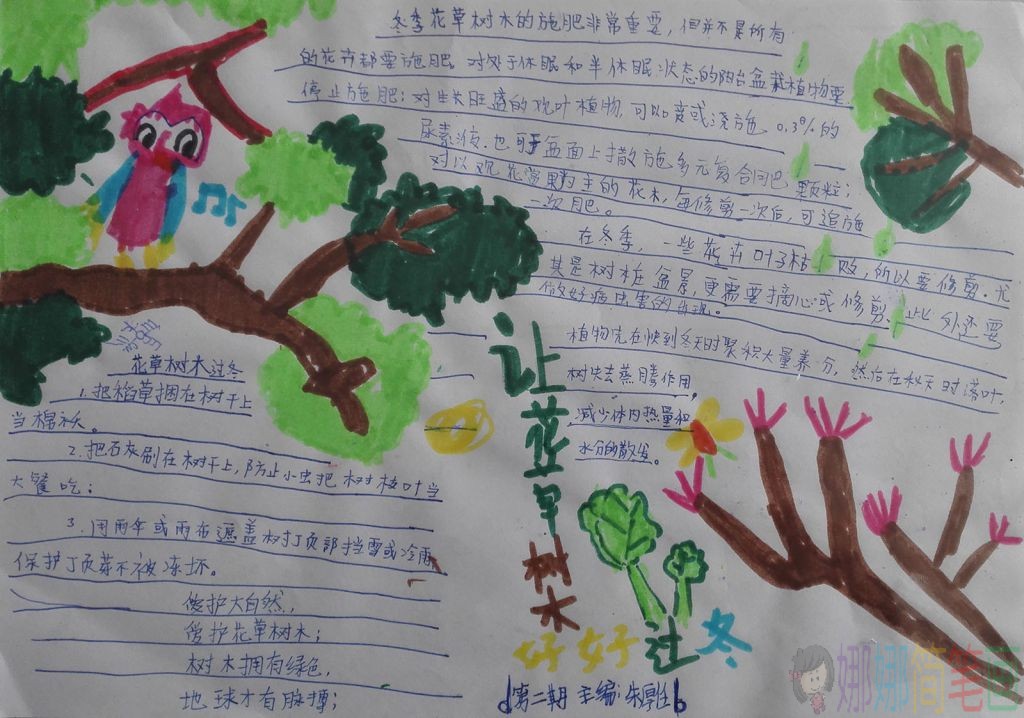 冬季花草树木的施肥非常重要，但并不是所有
的花卉都要施肥。对处于休眠和半休眠状态的阳台盆栽植物要
停止施肥；对生长旺盛的观叶植物，可以或浇施0.3%的
尿素液.也可盆面上撒施多元复合肥颗粒；
对以观花赏果为主的花木，每修剪一次后，可追施
一次肥。
在冬季，一些花卉叶子枯败，所以要修剪。尤
其是树桩盆景，更需要摘心或修剪。此外还要
做好病虫害的
植物先在快到冬天时聚积大量养分，然后在秋天时落叶，
树失去蒸腾作用，
减少体内热量和
水分的散发。
花草树木过冬
1.把稻草捆在树干上
当棉袄。
2.把石灰刷在树干上，防止小虫把树枝叶当
大餐吃；
3.用雨伞或雨布遮盖树顶部挡雪或冷雨
保护顶芽不被冻坏。
爱护大自然，
爱护花草树木；
树木拥有绿色，
地球才有脉搏；
让花草
树木
好好过冬
第二期 主编：朱
娜娜简笔画